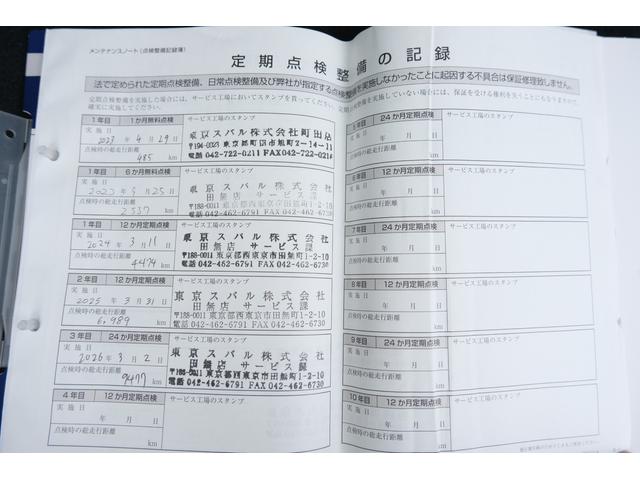 メンテナンスノート(点検整備記録簿)
定期点検整備の記録
法で定められた定期点検整備、日常点検整備及び弊社が指定する点検整備を実施しなかったことに起因する不具合は保証修理致しません。
定期点検整備を実施した場合には、サービス工場においてスタンプを貰ってください。定期点検整備を実施していない場合には、保証を受ける権利を失うことにもなりますので、
確実に実施してください。
1年目 1か月無料点検 サービス工場のスタンプ
実施日
2023年4月29日
点検時の総走行距離
485 km
東京スバル株式会社町田店
〒194-0023 東京都町田市旭町2-14-11
電話 042-722-0211 FAX 042-722-0214
1年目 6か月無料点検 サービス工場のスタンプ
実施日
点検時の総走行距離
2537 km
東京スバル株式会社
田無店 サービス課
〒188-0011 東京都西東京市田無町1-2-10
電話 042-462-6791 FAX 042-462-6730
1年目 12か月定期点検 サービス工場のスタンプ
実施日
2024年3月11日
点検時の総走行距離
4474 km
東京スバル株式会社
田無店 サービス課
〒188-0011 東京都西東京市田無町1-2-10
電話 042-462-6791 FAX 042-462-6730
2年目 12か月定期点検 サービス工場のスタンプ
実施日
2025年3月31日
点検時の総走行距離
6,989 km
東京スバル株式会社
田無店 サービス課
〒188-0011 東京都西東京市田無町1-2-10
電話 042-462-6791 FAX 042-462-6730
3年目 24か月定期点検 サービス工場のスタンプ
実施日
2026年3月2日
点検時の総走行距離
9477 km
東京スバル株式会社
田無店 サービス課
〒188-0011 東京都西東京市田無町1-2-10
電話 042-462-6791 FAX 042-462-6730
4年目 12か月定期点検 サービス工場のスタンプ
実施日
年 月 日
点検時の総走行距離
km
5年目 24か月定期点検 サービス工場のスタンプ
実施日
年 月 日
点検時の総走行距離
km
6年目 12か月定期点検 サービス工場のスタンプ
実施日
年 月 日
点検時の総走行距離
km
7年目 24か月定期点検 サービス工場のスタンプ
実施日
年 月 日
点検時の総走行距離
km
8年目 12か月定期点検 サービス工場のスタンプ
実施日
年 月 日
点検時の総走行距離
km
9年目 24か月定期点検 サービス工場のスタンプ
実施日
年 月 日
点検時の総走行距離
km
10年目 12か月定期点検 サービス工場のスタンプ
実施日
年 月 日
点検時の総走行距離
km